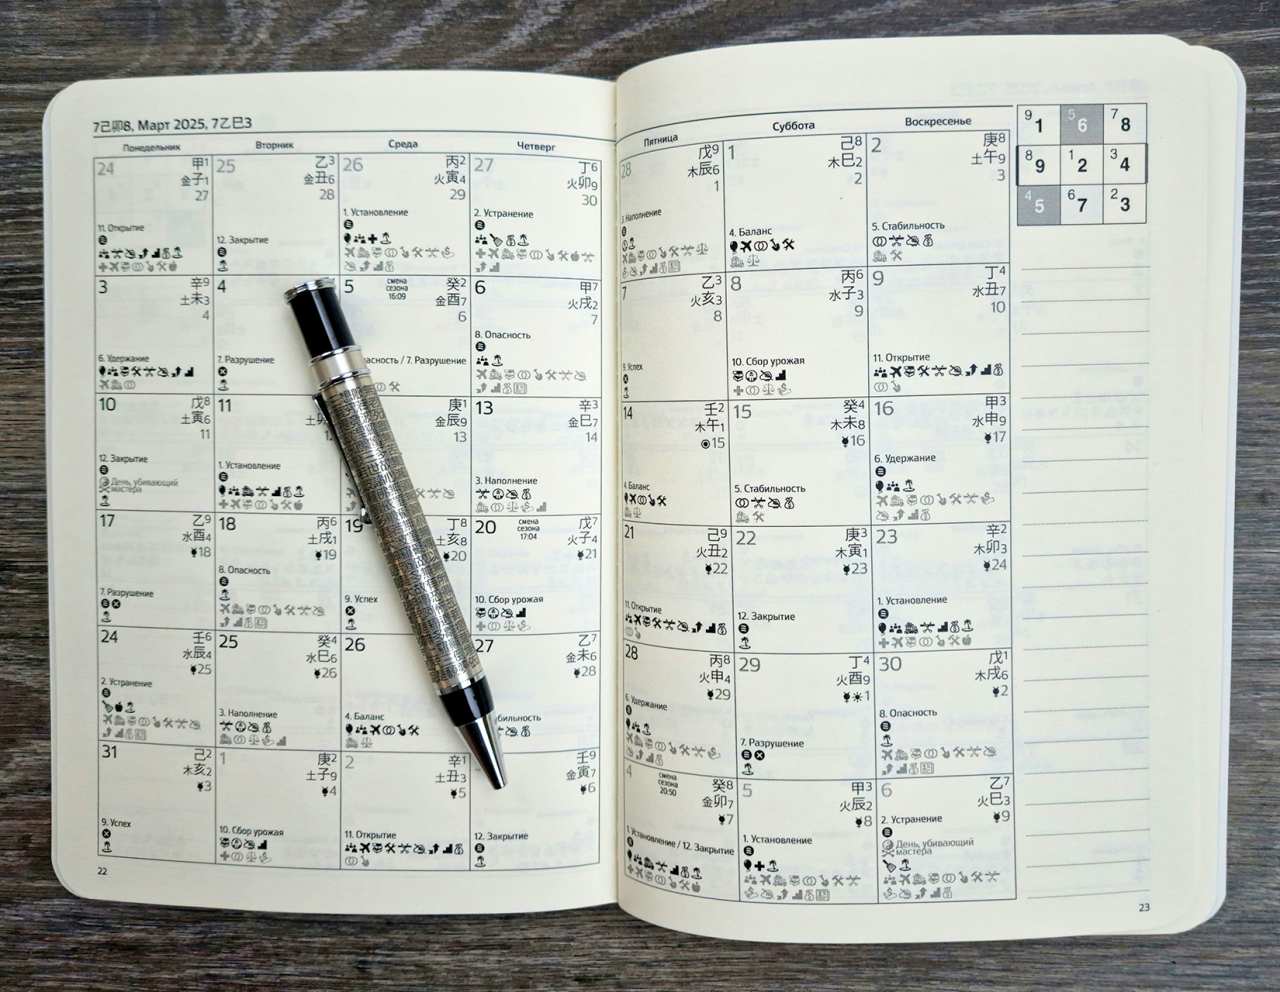 7己卯8, Март 2025, 7乙巳3
Понедельник Вторник Среда Четверг
24 甲1
金子1
27
11. Открытие
25 乙3
金丑6
28
12. Закрытие
26 丙2
火寅4
29
1. Установление
27 丁6
火卯9
30
2. Устранение
3 辛9
土未3
4
6. Удержание
4
7. Разрушение
5 смена сезона 16:09 癸2
金酉7
6
/ 7. Разрушение
6 甲7
火戌2
7
8. Опасность
10 戊8
土寅6
11
12. Закрытие
День, убивающий
мастера
11
1. Установление
庚1
金辰9
13
13 辛3
金巳7
14
3. Наполнение
17 乙9
水酉4
18
7. Разрушение
18 丙6
土戌1
19
8. Опасность
19 丁8
土亥8
20
9. Успех
20 смена сезона 17:04 戊7
火子4
21
10. Сбор урожая
24 壬6
水辰4
25
2. Устранение
25 癸4
水巳6
26
3. Наполнение
26
4. Баланс
27 乙7
金未6
28
31 己2
木亥2
3
9. Успех
1 庚2
土子9
4
10. Сбор урожая
2 辛1
土丑3
5
11. Открытие
壬9
金寅7
6
12. Закрытие
22
Пятница Суббота Воскресенье
28 戊9
木辰6
1
3. Наполнение
1 己8
木巳2
2
4. Баланс
2 庚8
土午9
3
5. Стабильность
7 乙3
火亥3
8
9. Успех
8 丙6
水子3
9
10. Сбор урожая
9 丁4
水丑7
10
11. Открытие
14 壬2
木午1
15
4. Баланс
15 癸4
木未8
16
5. Стабильность
16 甲3
水申9
17
6. Удержание
21 己9
火丑2
22
11. Открытие
22 庚3
木寅1
23
12. Закрытие
23 辛2
木卯3
24
1. Установление
28 丙8
火申4
29
6. Удержание
29 丁4
火酉9
1
7. Разрушение
30 戊1
木戌6
2
8. Опасность
4 смена сезона 20:50 癸8
金卯7
7
1. Установление / 12. Закрытие
5 甲3
火辰2
8
1. Установление
6 乙7
火巳3
9
2. Устранение
День, убивающий
мастера
9 1 5 6 7 8
8 9 1 2 3 4
4 5 6 7 2 3
23